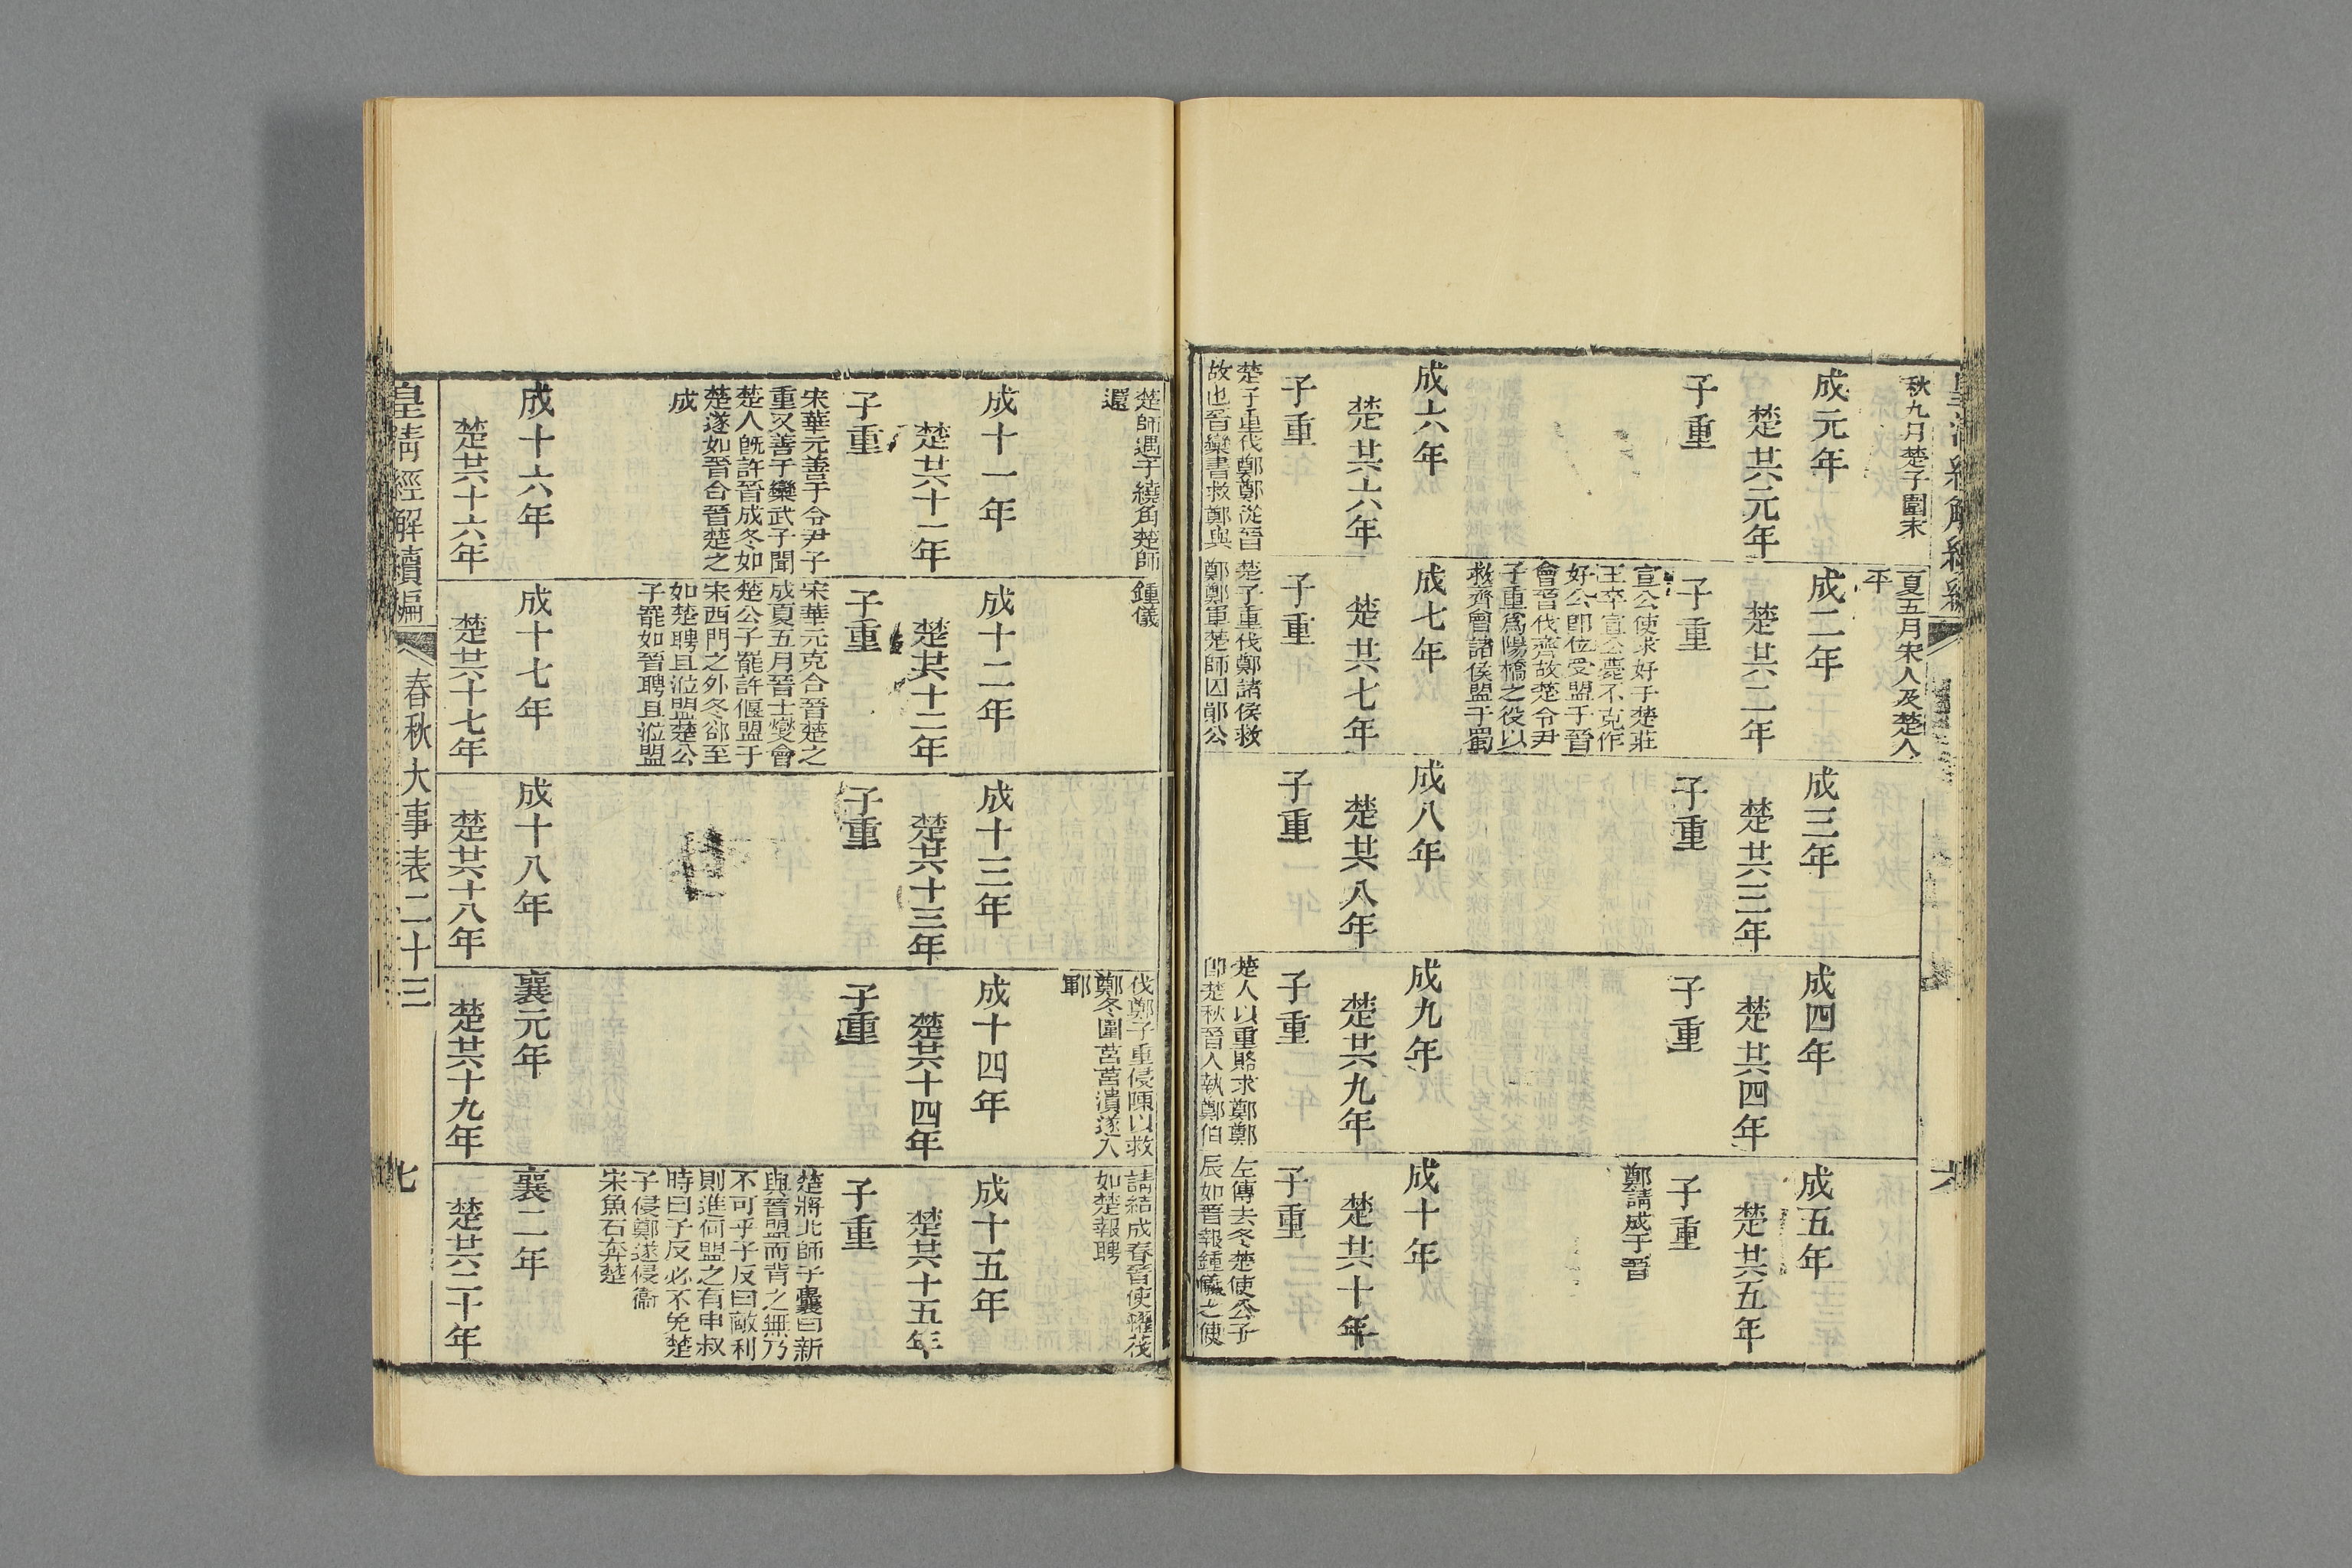 皇清經解續編
六
秋九月楚子圍宋
夏五月宋人及楚人
平
成元年
楚共元年
子重
成二年
楚共二年
子重
宣公使求好于楚莊
王卒宣公薨不克作
好公卽位受盟于晉
會晉伐齊故楚令尹
子重爲陽橋之役以
救齊會諸侯盟于蜀
成三年
楚共三年
子重
成四年
楚共四年
子重
成五年
楚共五年
子重
鄭請成于晉
成六年
楚共六年
子重
楚子重伐鄭鄭從晉
故也晉欒書救鄭與
成七年
楚共七年
子重
楚子重伐鄭諸侯救
鄭鄭軍楚師囚鄖公
成八年
楚共八年
子重
成九年
楚共九年
子重
楚人以重賂求鄭鄭
卽楚秋晉人執鄭伯
成十年
楚共十年
子重
左傳去冬楚使公子
辰如晉報鍾儀之使
楚師遇于繞角楚師
還
鍾儀
伐鄭子重侵陳以救
鄭冬圍莒莒潰遂入
鄆
請結成春晉使糴茷
如楚報聘
成十一年
楚共十一年
子重
宋華元善于令尹子
重又善于欒武子聞
楚人旣許晉成冬如
楚遂如晉合晉楚之
成
成十二年
楚共十二年
子重
宋華元克合晉楚之
成夏五月晉士燮會
楚公子罷許偃盟于
宋西門之外冬郤至
如楚聘且涖盟楚公
子罷如晉聘且涖盟
成十三年
楚共十三年
子重
成十四年
楚共十四年
子重
成十五年
楚共十五年
子重
楚將北師子囊曰新
與晉盟而背之無乃
不可乎子反曰敵利
則進何盟之有申叔
時曰子反必不免楚
子侵鄭遂侵衞
宋魚石奔楚
成十六年
楚共十六年
成十七年
楚共十七年
成十八年
楚共十八年
襄元年
楚共十九年
襄二年
楚共二十年
皇清經解續編
春秋大事表二十三
七